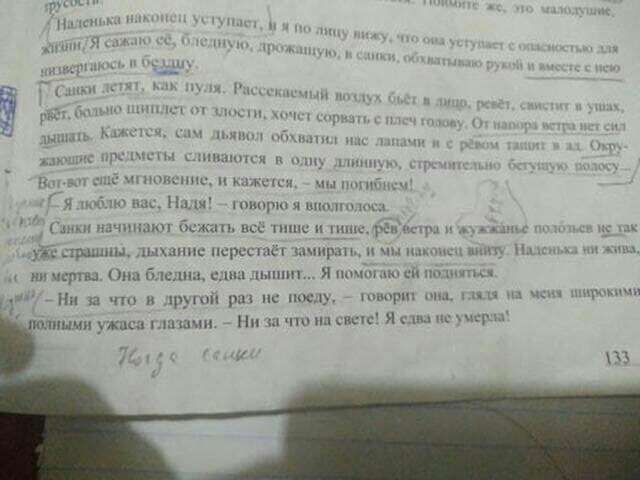 трусости.
Поймите же, это малодушие,
Наденька наконец уступает, и я по лицу вижу, что она уступает с опасностью для
жизни. Я сажаю её, бледную, дрожащую, в санки, обхватываю рукой и вместе с нею
низвергаюсь в бездну.
Санки летят, как пуля. Рассекаемый воздух бьёт в лицо, ревёт, свистит в ушах,
рвёт, больно щиплет от злости, хочет сорвать с плеч голову. От напора ветра нет сил
дышать. Кажется, сам дьявол обхватил нас лапами и с рёвом тащит в ад. Окру-
жающие предметы сливаются в одну длинную, стремительно бегущую полосу...
Вот-вот ещё мгновение, и кажется, – мы погибнем!
– Я люблю вас, Надя! – говорю я вполголоса.
Санки начинают бежать всё тише и тише, рёв ветра и жужжанье полозьев не так
уже страшны, дыхание перестаёт замирать, и мы наконец внизу. Наденька ни жива,
ни мертва. Она бледна, едва дышит... Я помогаю ей подняться.
– Ни за что в другой раз не поеду, – говорит она, глядя на меня широкими,
полными ужаса глазами. – Ни за что на свете! Я едва не умерла!
Когда санки
133